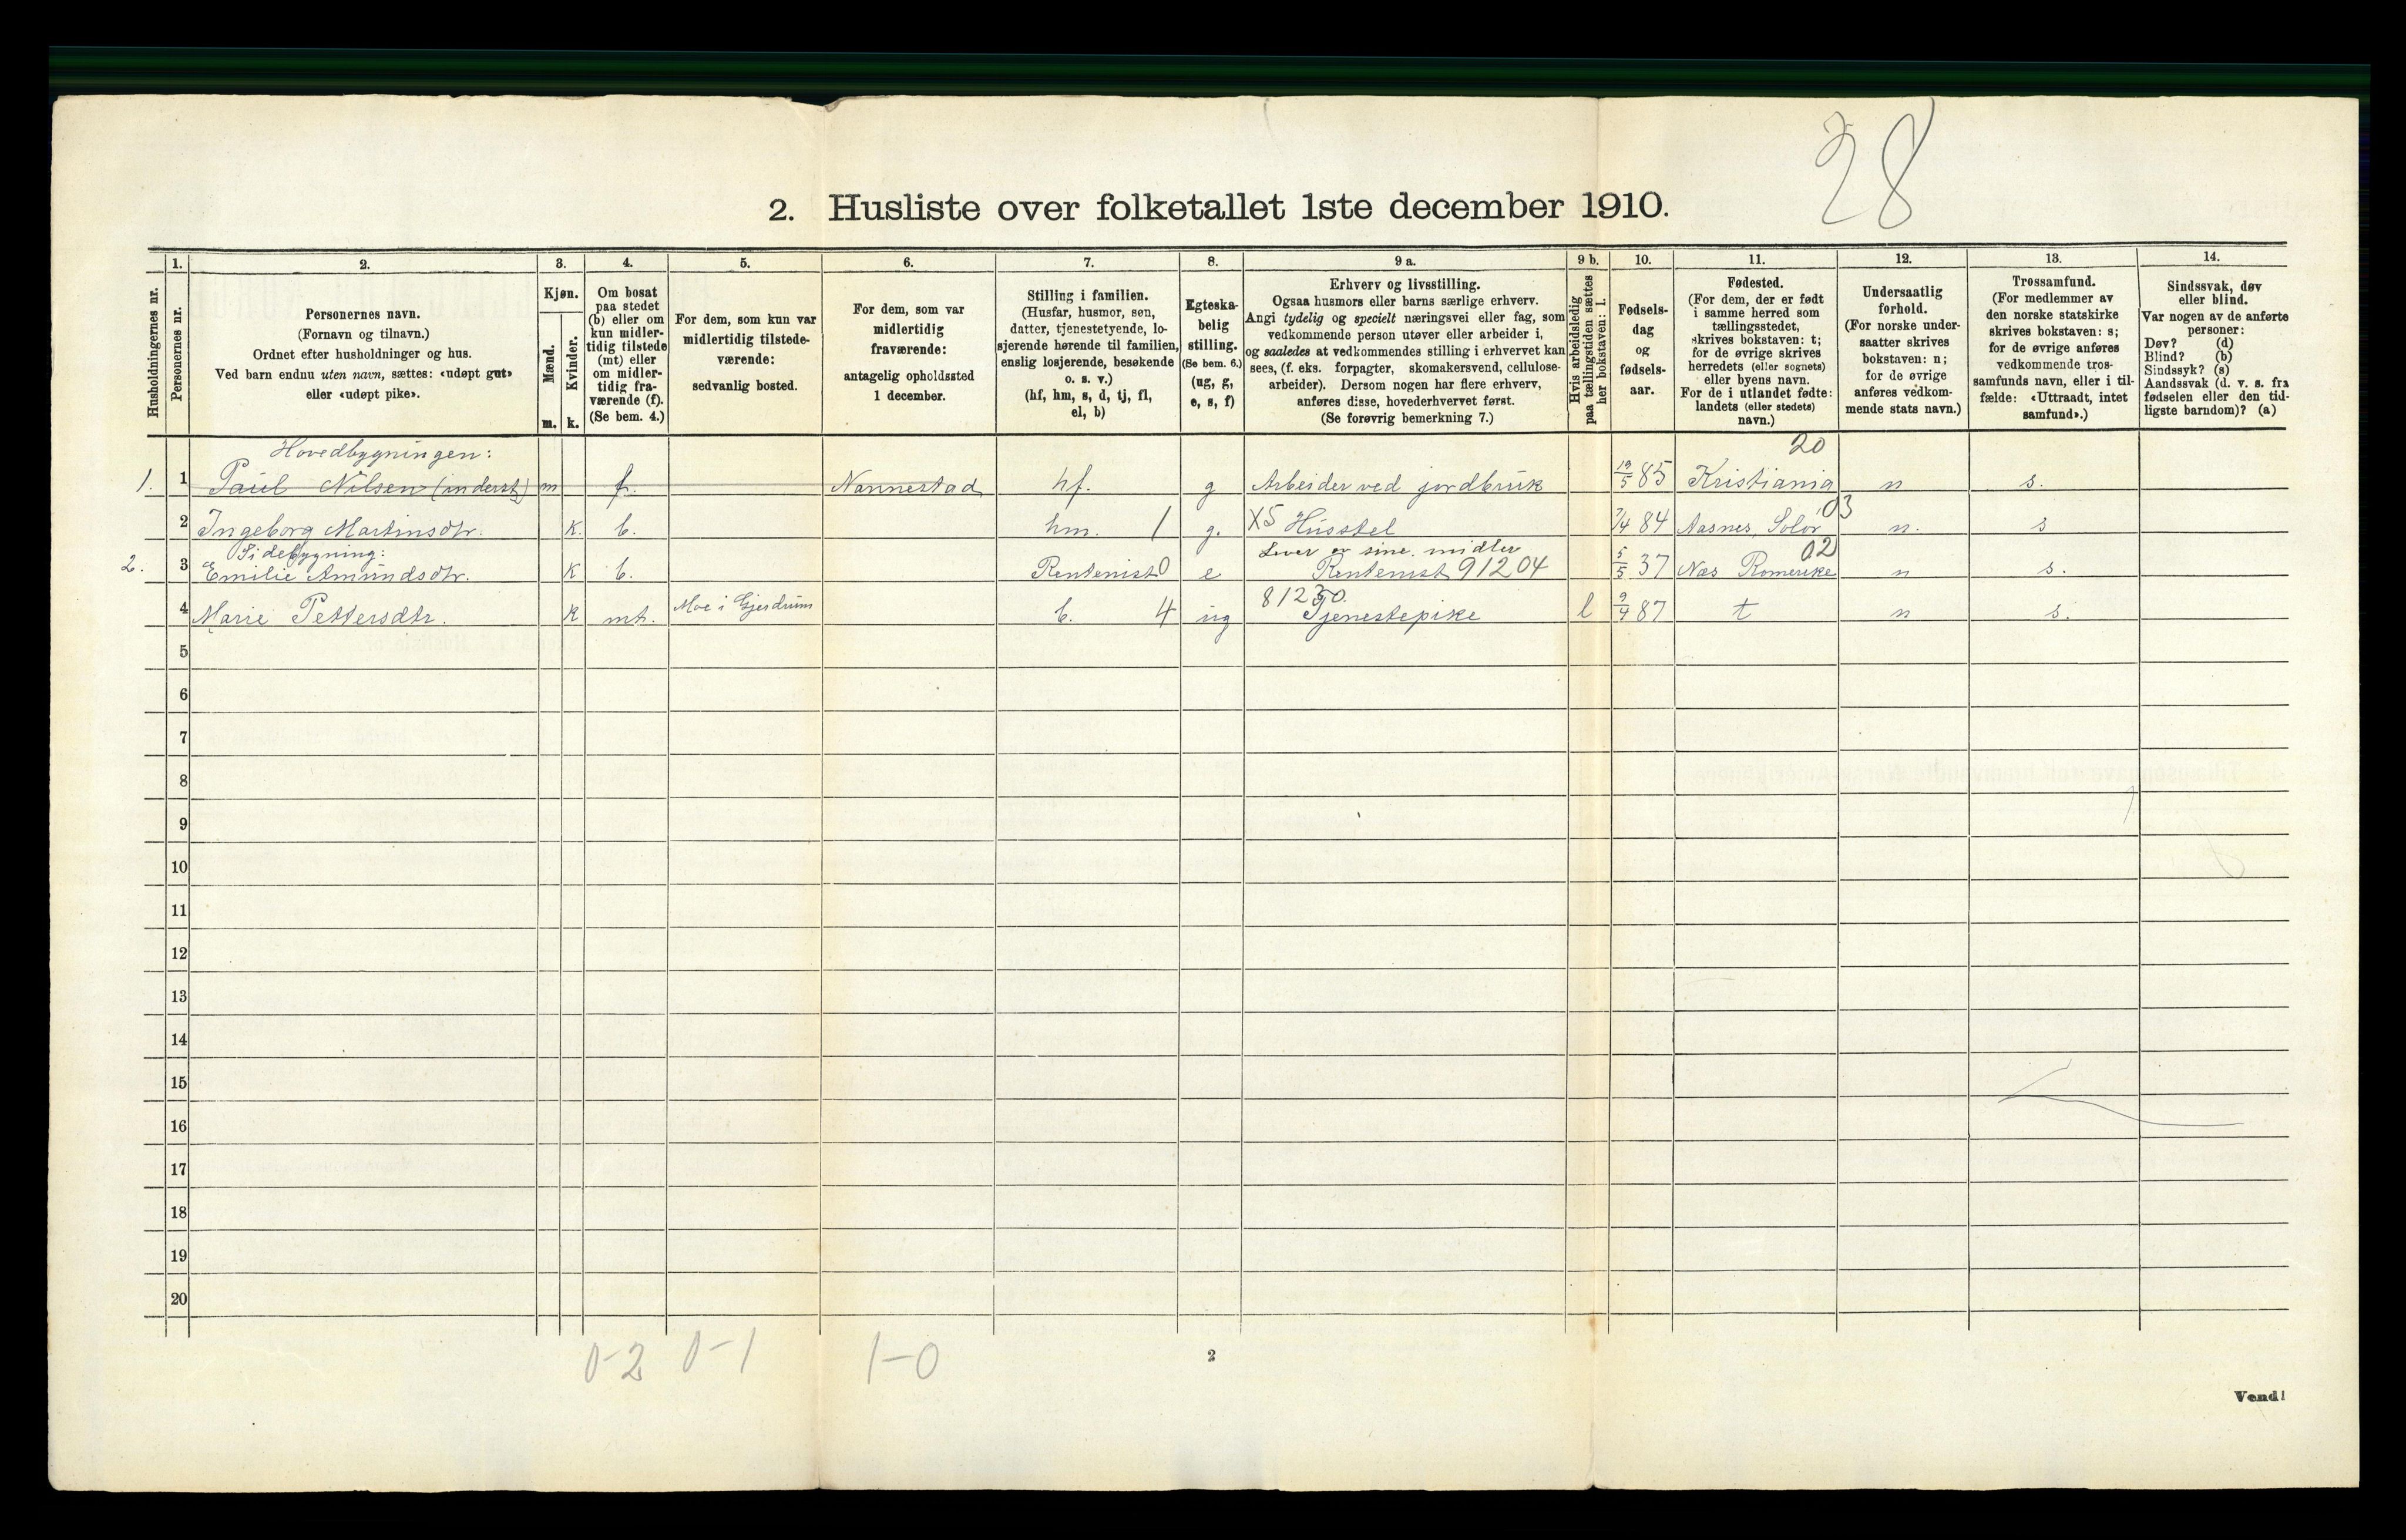 28
2. Husliste over folketallet 1ste december 1910.
Husholdningernes nr.
1. Personernes nr.
2. Personernes navn.
(Fornavn og tilnavn.)
Ordnet efter husholdninger og hus.
Ved barn endnu uten navn, sættes: «udøpt gut»
eller «udøpt pike».
3. Kjøn.
Mænd. m.
Kvinder. k.
4. Om bosat
paa stedet
(b) eller om
kun midler-
tidig tilstede
(mt) eller
om midler-
tidig fra-
værende (f).
(Se bem. 4.)
5. For dem, som kun var
midlertidig tilstede-
værende:
sedvanlig bosted.
6. For dem, som var
midlertidig
fraværende:
antagelig opholdssted
1 december.
7. Stilling i familien.
(Husfar, husmor, søn,
datter, tjenestetyende, lo-
sjerende hørende til familien,
enslig losjerende, besøkende
o. s. v.)
(hf, hm, s, d, tj, fl,
el, b)
8. Egteska-
belig
stilling.
(Se bem. 6.)
(ug, g,
e, s, f)
9 a. Erhverv og livsstilling.
Ogsaa husmors eller barns særlige erhverv.
Angi tydelig og specielt næringsvei eller fag, som
vedkommende person utøver eller arbeider i,
og saaledes at vedkommendes stilling i erhvervet kan
sees, (f. eks. forpagter, skomakersvend, cellulose-
arbeider). Dersom nogen har flere erhverv,
anføres disse, hovederhvervet først.
(Se forøvrig bemerkning 7.)
9 b. Hvis arbeidsledig
paa tællingstiden sættes
her bokstaven: l.
10. Fødsels-
dag
og
fødsels-
aar.
11. Fødested.
(For dem, der er født
i samme herred som
tællingsstedet,
skrives bokstaven: t;
for de øvrige skrives
herredets (eller sognets)
eller byens navn.
For de i utlandet fødte:
landets (eller stedets)
navn.)
12. Undersaatlig
forhold.
(For norske under-
saatter skrives
bokstaven: n;
for de øvrige
anføres vedkom-
mende stats navn.)
13. Trossamfund.
(For medlemmer av
den norske statskirke
skrives bokstaven: s;
for de øvrige anføres
vedkommende tros-
samfunds navn, eller i til-
fælde: «Uttraadt, intet
samfund».)
14. Sindssvak, døv
eller blind.
Var nogen av de anførte
personer:
Døv? (d)
Blind? (b)
Sindssyk? (s)
Aandssvak (d. v. s. fra
fødselen eller den tid-
ligste barndom)? (a)
Hovedbygningen: 20
1. 1 Paul Nilsen (inderst) m f. Nannestad hf. g Arbeider ved jordbruk 19/5 85 Kristiania n s.
03
2 Ingeborg Martinsdtr. K. b. hm. 1 g. X5 Husstel 7/4 84 Aasnes, Solør n. s
Sidebygning: Lever av sine midler 02
2. 3 Emilie Amundsdtr. K b. Rentenist 0 e Rentenist 91204 5/5 37 Næs Romerike n s.
81230.
4 Marie Pettersdtr. K mt. Moe i Gjerdrum b. 4 ug Tjenestepike l 9/4 87 t n s.
5
6
7
8
9
10
11
12
13
14
15
16
17
18
19
20
0-2 0-1 1-0
2
Vend!